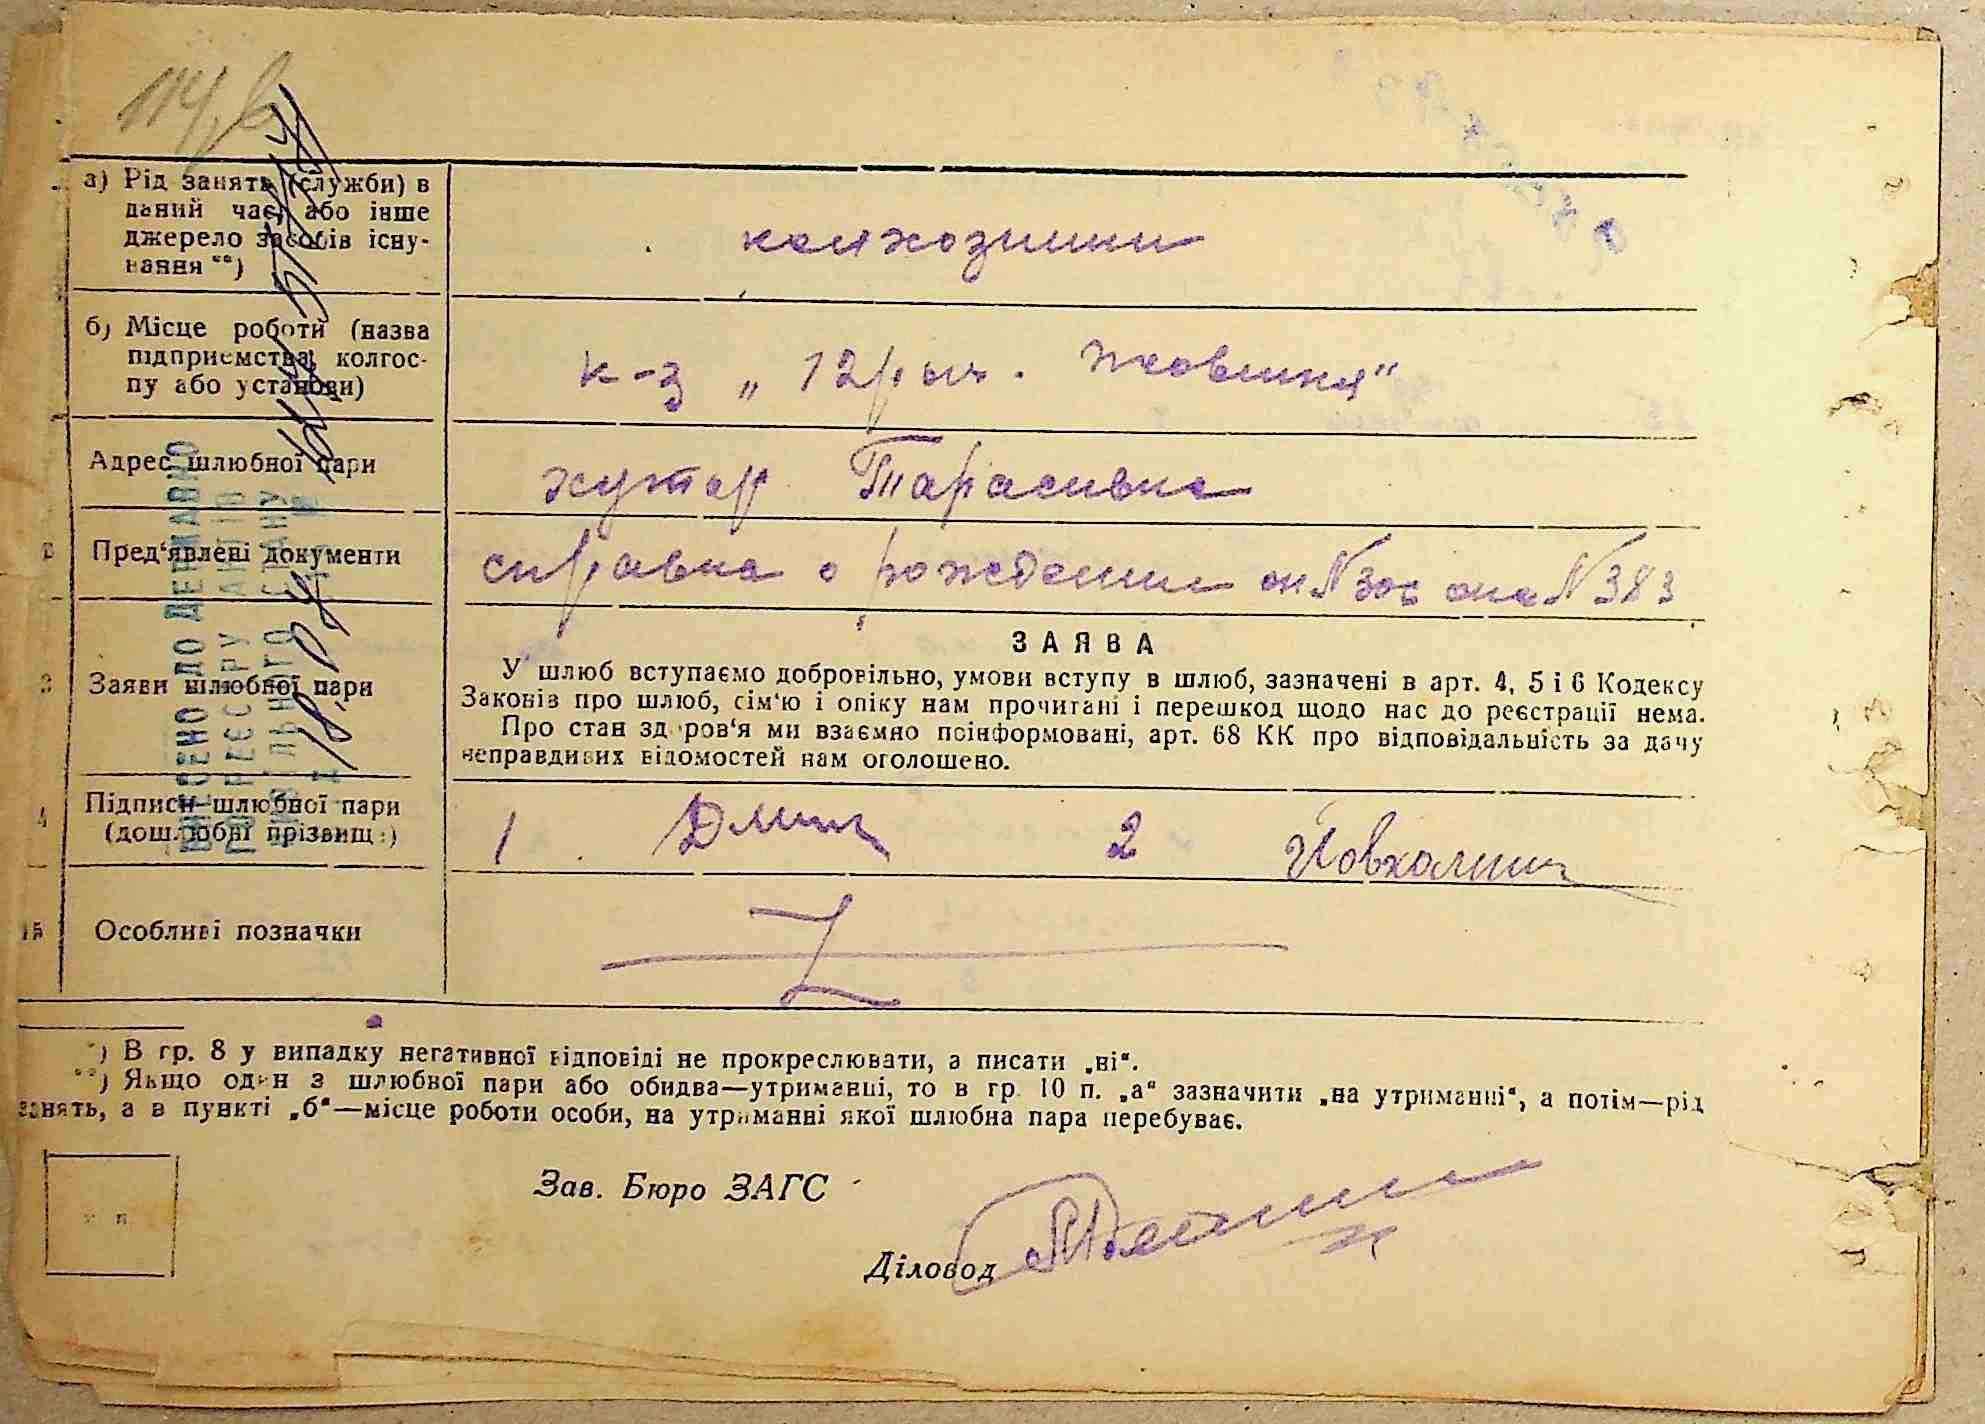 а) Рід занять (служби) в
даний час, або інше
джерело засобів існу-
вання **)
колхозники
б) Місце роботи (назва
підприємства, колгос-
пу або установи)
к-з „12 рыч. Жовтня"
Адрес шлюбної пари
хутор Тарасивка
Пред'явлені документи
справка о рождении он № 306 она № 383
3
Заяви шлюбної пари
ЗАЯВА
У шлюб вступаємо добровільно, умови вступу в шлюб, зазначені в арт. 4, 5 і 6 Кодексу
Законів про шлюб, сім'ю і опіку нам прочитані і перешкод щодо нас до реєстрації нема.
Про стан здоров'я ми взаємно поінформовані, арт. 68 КК про відповідальність за дачу
неправдивих відомостей нам оголошено.
4
Підписи шлюбної пари
(дошлюбні прізвища)
1
2
15
Особливі позначки
*) В гр. 8 у випадку негативної відповіді не прокреслювати, а писати „ні".
**) Якщо один з шлюбної пари або обидва—утриманці, то в гр. 10 п. „а" зазначити „на утриманні", а потім—рід
занять, а в пункті „б"—місце роботи особи, на утриманні якої шлюбна пара перебуває.
Зав. Бюро ЗАГС
Діловод
ВНЕСЕНО ДО ДЕРЖАВНО
ГО РЕЄСТРУ АКТІВ
ЦИВІЛЬНОГО СТАНУ